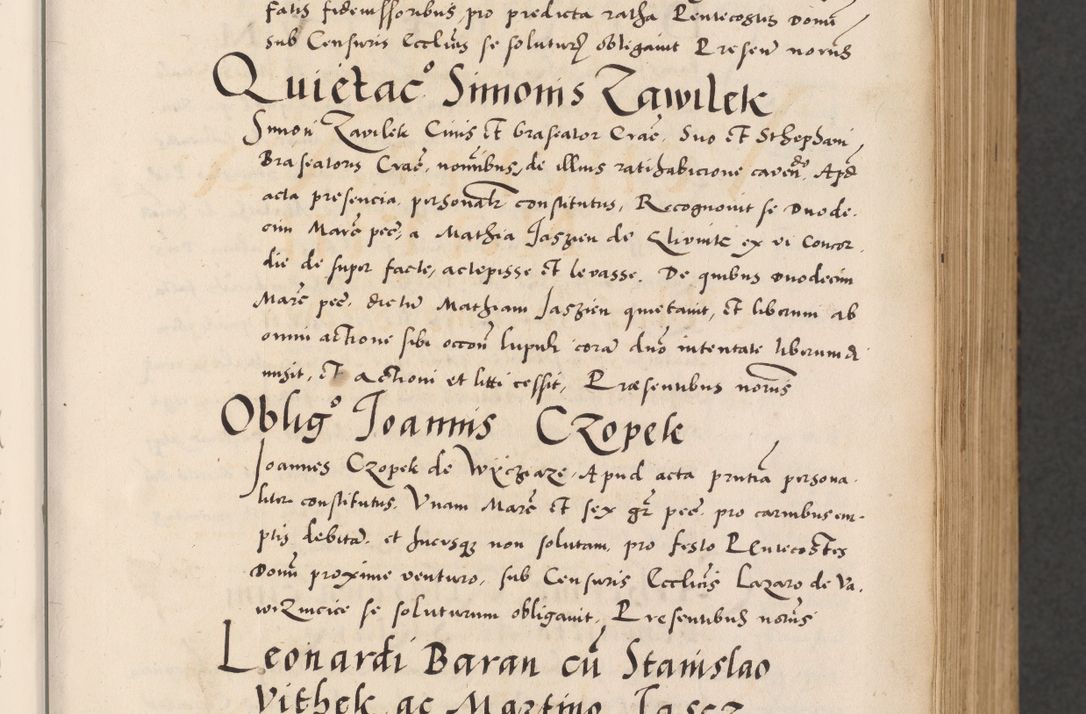 fatis fideiussoribus, pro predicta ratha Pentecostis Domi
sub Censuris Eccliis se soluturu obligavit Presen norus
Quietac° Simonis Zawilek
Simon Zawilek Civis et braseator Crac. Suo et Sthephani
Braseatoris Crac. nomibus, de illius ratihabicione caven. Apd
acta presencia personalr constitutus, Recognovit se Duode-
cim Marc pec, a Mathia Jaszien de Clivnik ex vi Concor-
die de super facte, accepisse et levasse. De quibus Duodecim
Marc pec. dictu Mathiam Jaszien quietavit, et liberum ab
omni actione sibi occon lupuli cora dno intentate liberum di
misit, et actioni et liti cessit, Præsentibus norus
Oblig° Joannis Czopek
Joannes Czopek de Wyczaze, Apud acta prntia persona-
liter constitutus, Unam Marc et sex gr pec. pro carnibus em-
ptis debitam, et hucusq non solutam, pro festo Pentecostes
Domi proxime venturo, sub Censuris Eccliis Lazaro de Va-
wrzincice se soluturum obligavit, Presentibus norus
Leonardi Baran cu Stanislao
Vithek ac Martino Jascz